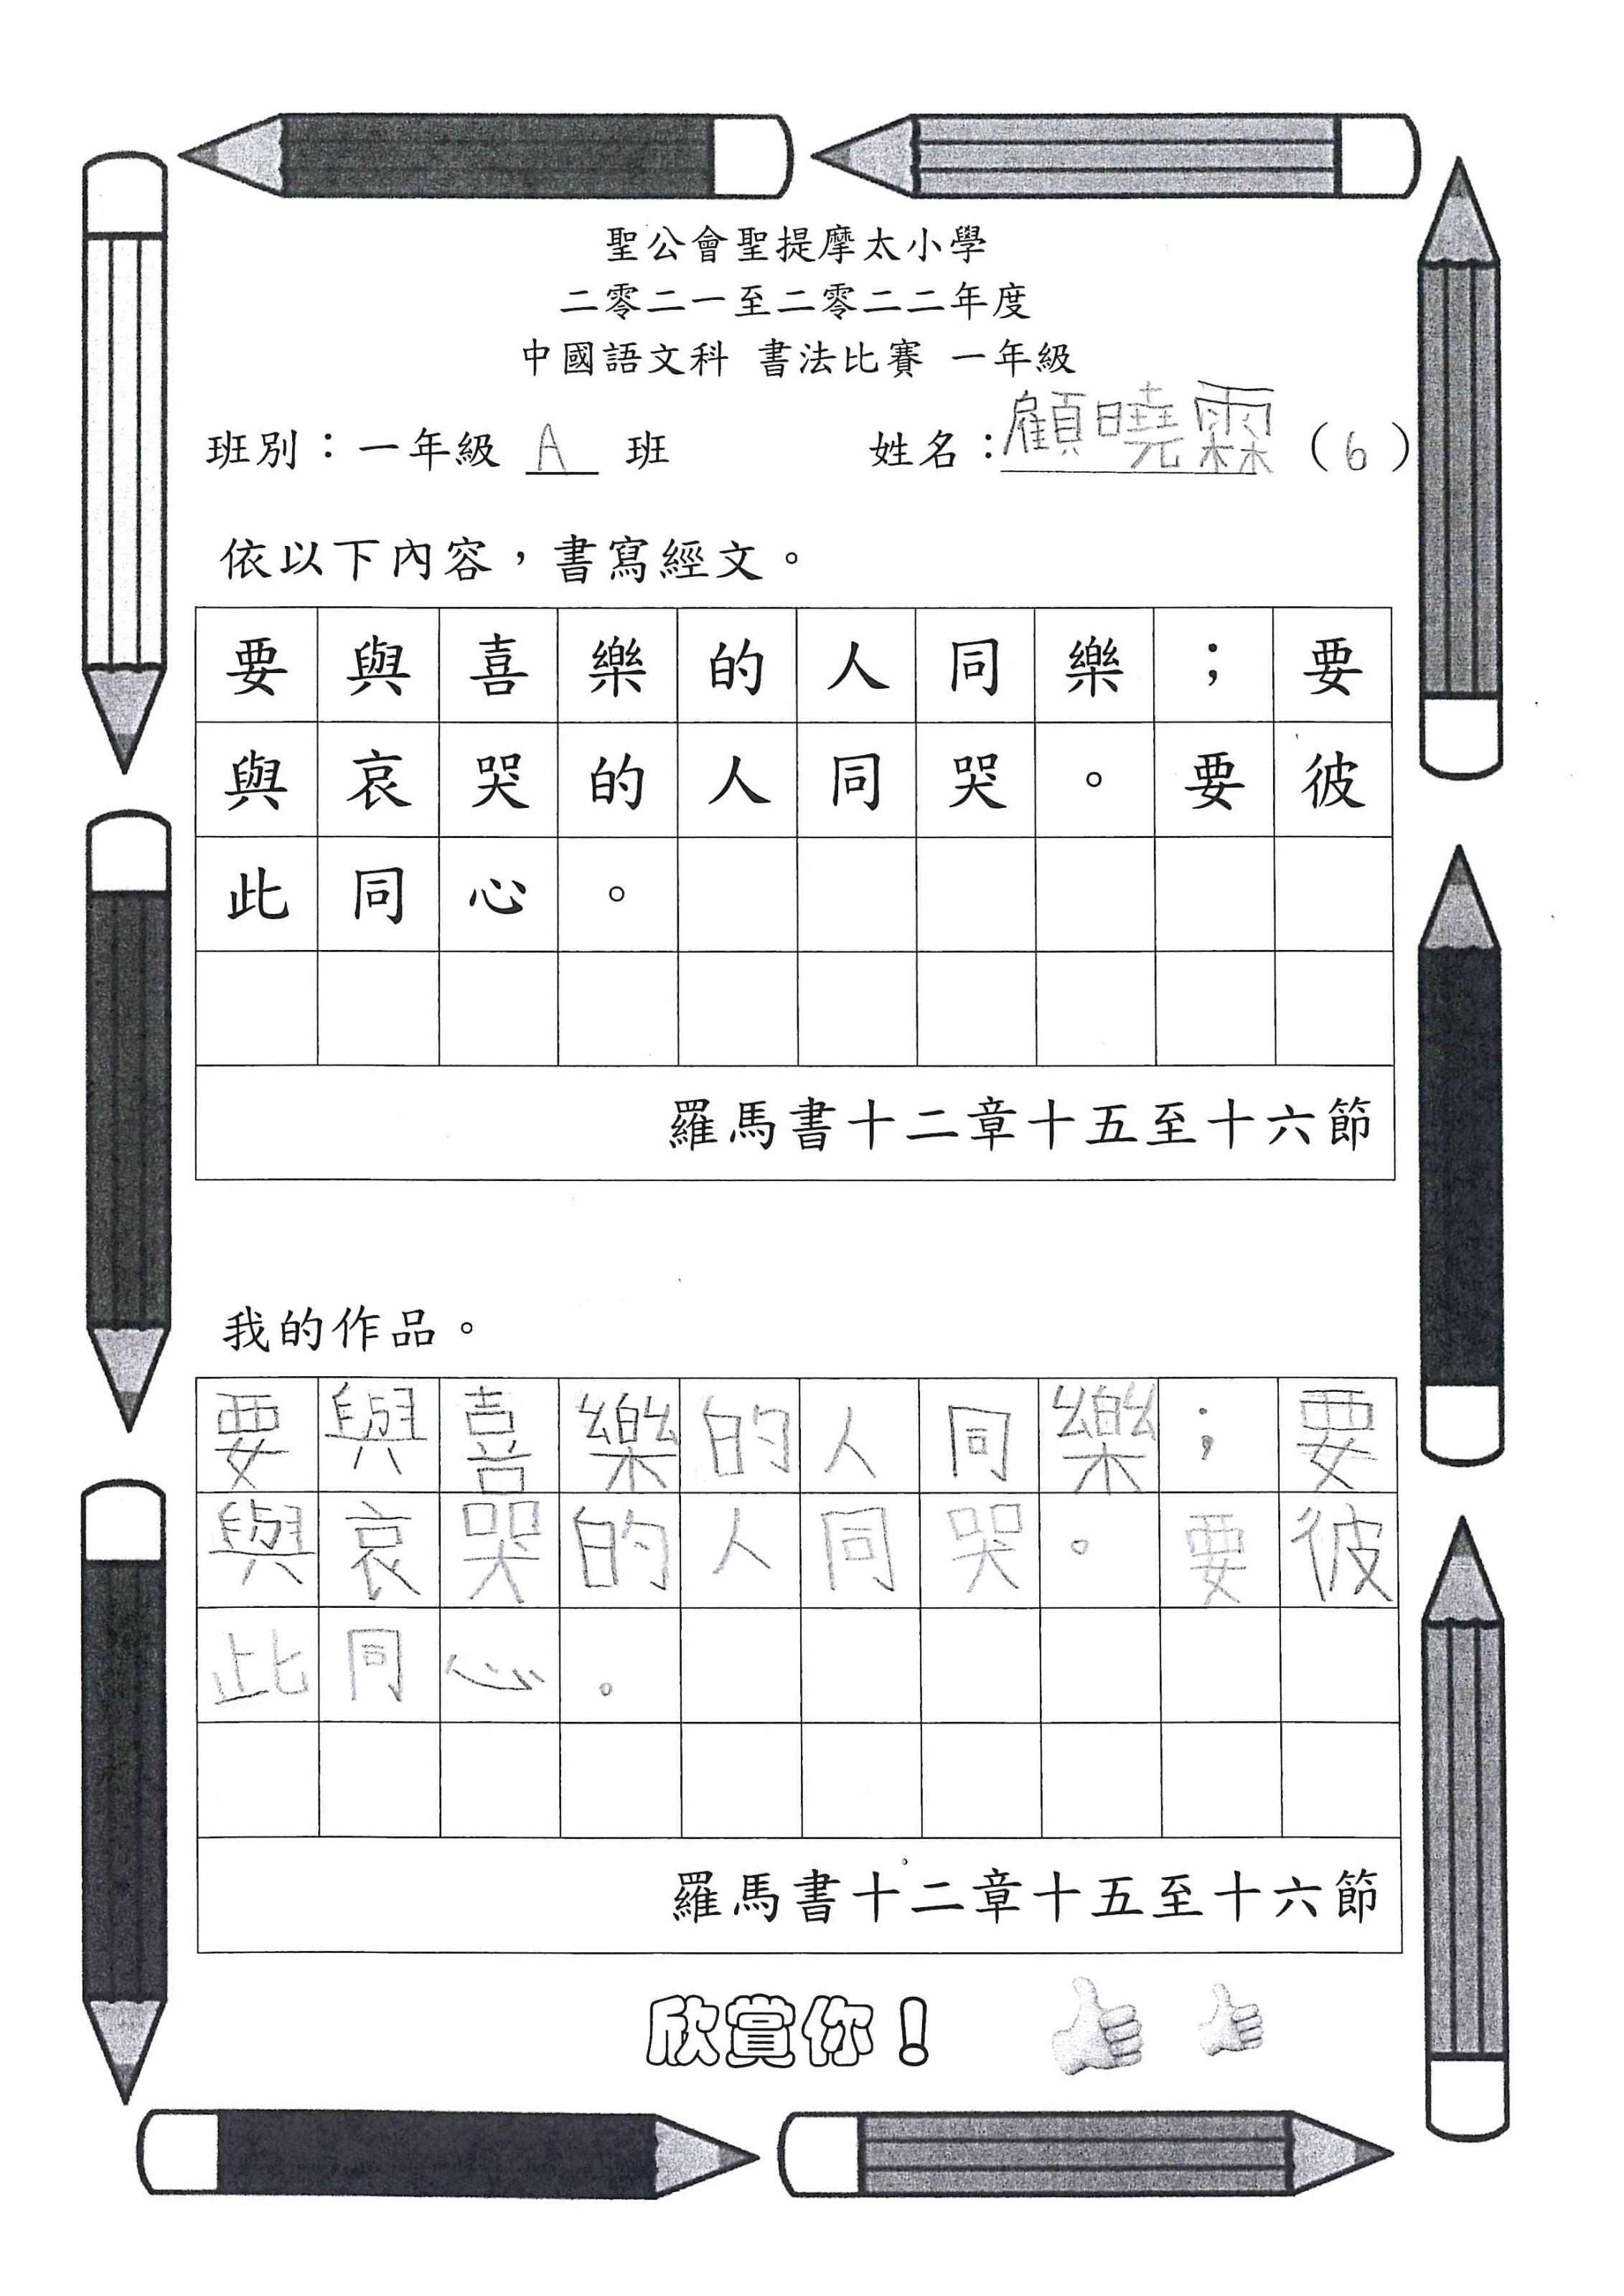 聖公會聖提摩太小學
二零二一至二零二二年度
中國語文科 書法比賽 一年級
班別：一年級 A 班 姓名：顧曉霖（6）
依以下內容，書寫經文。
要與喜樂的人同樂；要
與哀哭的人同哭。要彼
此同心。
羅馬書十二章十五至十六節
我的作品。
要與喜樂的人同樂；要
與哀哭的人同哭。要彼
此同心。
羅馬書十二章十五至十六節
欣賞你！